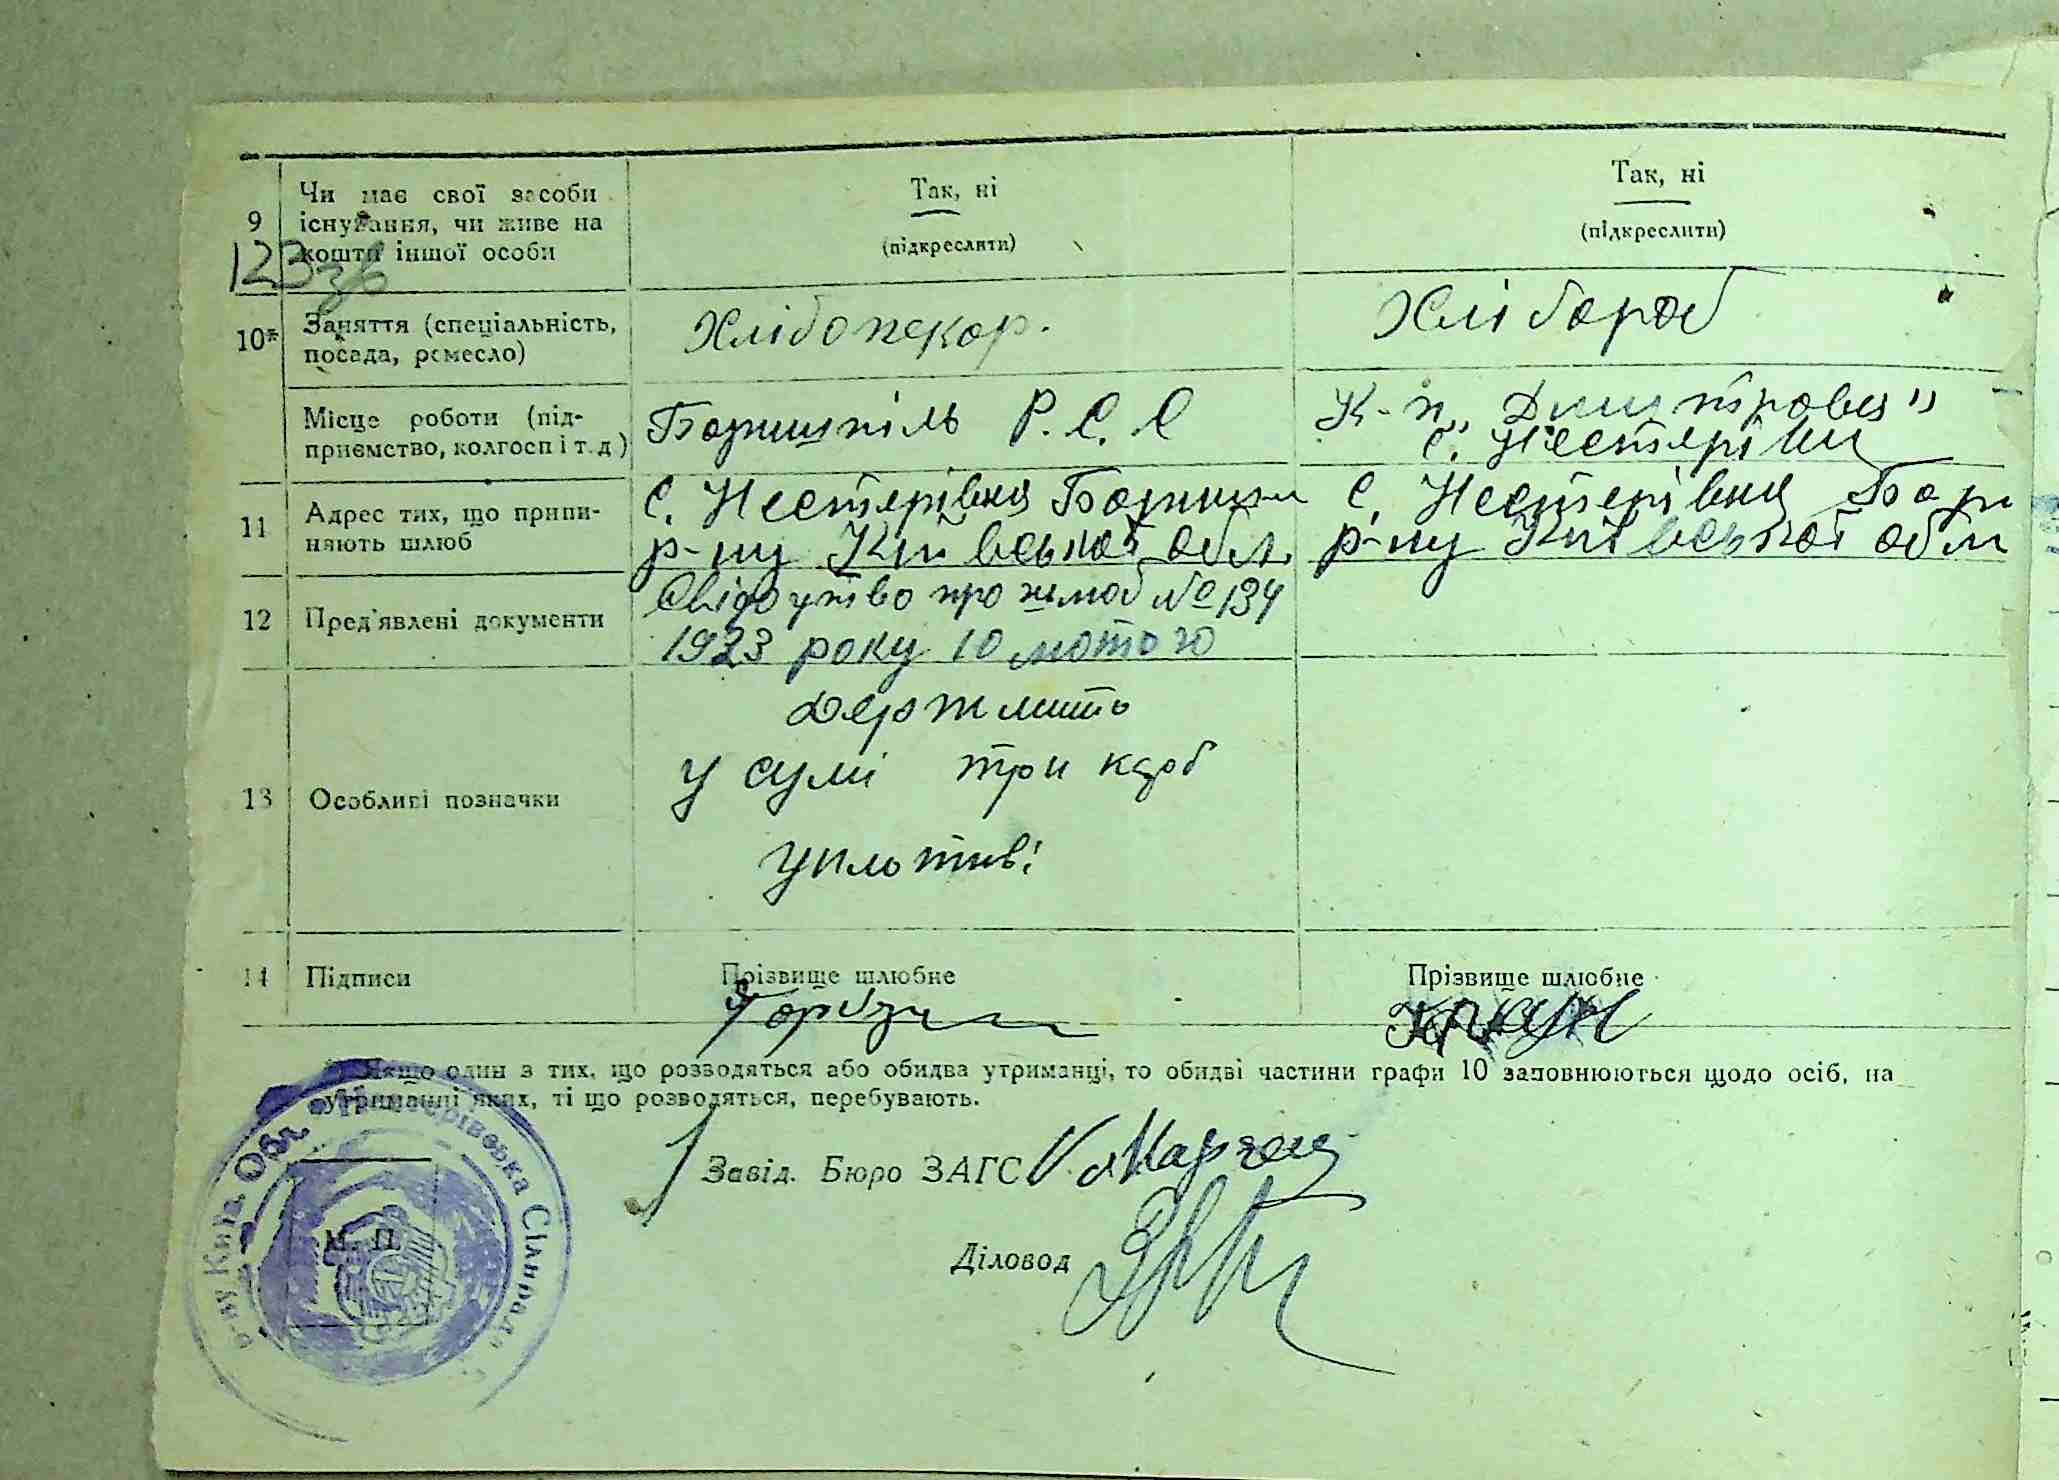 9
Чи має свої засоби існування, чи живе на кошти іншої особи
Так, ні
(підкреслити)
Так, ні
(підкреслити)
123
10*
Заняття (спеціальність, посада, ремесло)
Хлібопекар.
Хлібороб
Місце роботи (під-
приємство, колгосп і т. д)
Бориспіль Р. С. С
К-п „Димитрова"
с. Нестерівки
11
Адрес тих, що припи-
няють шлюб
с. Нестерівка Борисп
р-ну Київської обл.
с. Нестерівка Бори
р-ну Київської обл
12
Пред'явлені документи
Свідоцтво про шлюб № 134
1923 року 10 лютого
13
Особливі позначки
Держмито
у сумі три карб
уплотив:
14
Підписи
Прізвище шлюбне
Прізвище шлюбне
Якщо один з тих, що розводяться або обидва утриманці, то обидві частини графи 10 заповнюються щодо осіб, на
утриманні яких, ті що розводяться, перебувають.
Завід. Бюро ЗАГС
Діловод
М. П.
р-ну Київ. Обл. Сільрада